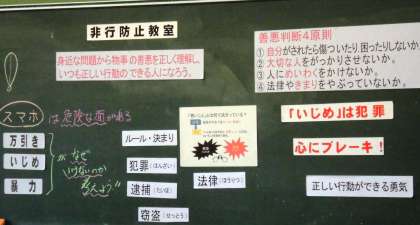 非行防止教室
身近な問題から物事の善悪を正しく理解し、
いつも正しい行動のできる人になろう。
善悪判断4原則
① 自分がされたら傷ついたり、困ったりしないか。
② 大切な人をがっかりさせないか。
③ 人にめいわくをかけないか。
④ 法律やきまりをやぶっていないか。
スマホは危険な面がある
万引き
いじめ
暴力
がなぜ
いけないのか
考えよう!!
ルール・決まり
犯罪(はんざい)
逮捕(たいほ)
窃盗(せっとう)
法律(ほうりつ)
「いじめ」は犯罪
心にブレーキ!
正しい行動ができる勇気